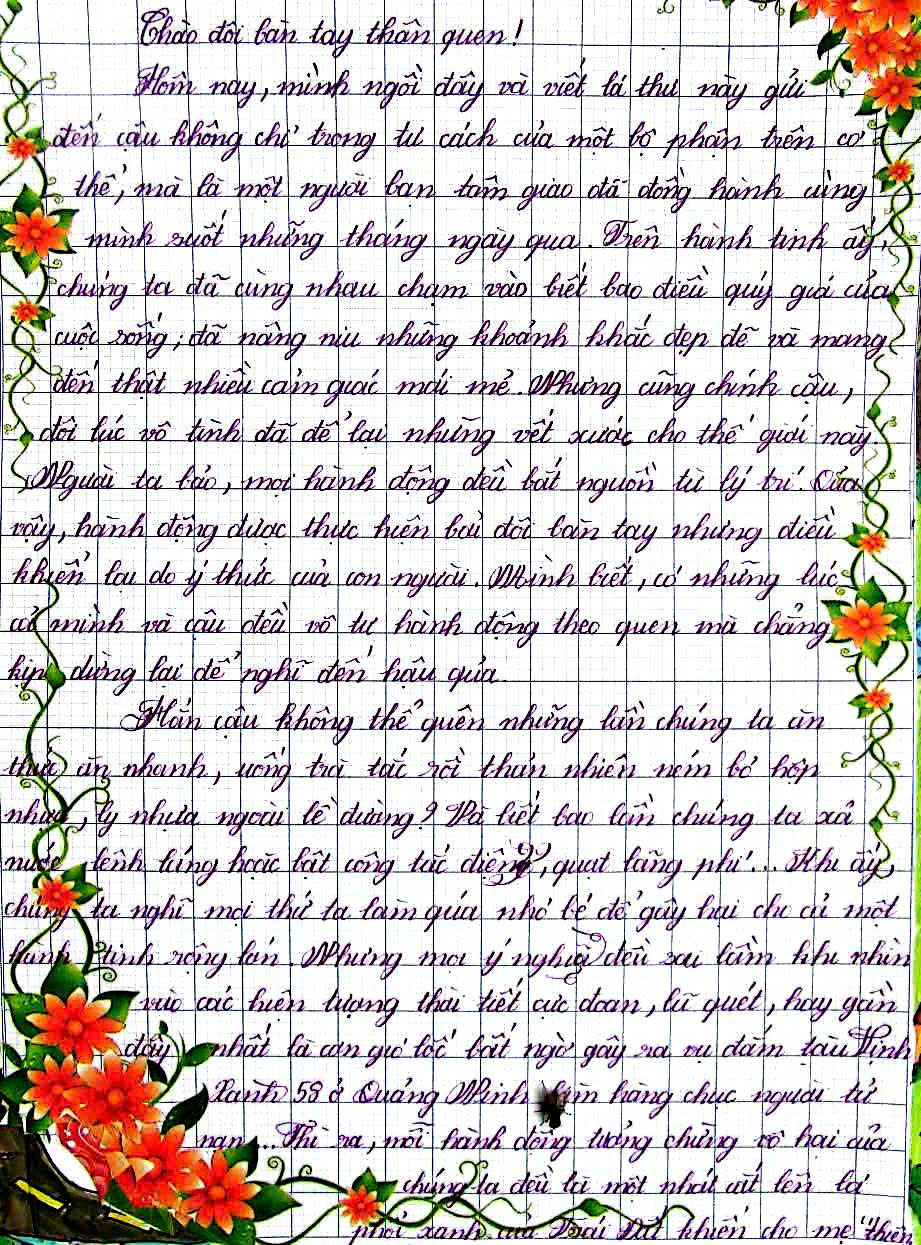 Chào đôi bàn tay thân quen!
Hôm nay, mình ngồi đây và viết lá thư này gửi
đến cậu không chỉ trong tư cách của một bộ phận trên cơ
thể, mà là một người bạn tâm giao đã đồng hành cùng
mình suốt những tháng ngày qua. Trên hành tinh ấy,
chúng ta đã cùng nhau chạm vào biết bao điều quý giá của
cuộc sống; đã nâng niu những khoảnh khắc đẹp đẽ và mang
đến thật nhiều cảm giác mới mẻ. Nhưng cũng chính cậu,
đôi lúc vô tình đã để lại những vết xước cho thế giới này.
Người ta bảo, mọi hành động đều bắt nguồn từ lý trí. Quả
vậy, hành động được thực hiện bởi đôi bàn tay nhưng điều
khiển lại do ý thức của con người. Mình biết, có những lúc
cả mình và cậu đều vô tư hành động theo quen mà chẳng
kịp dừng lại để nghĩ đến hậu qủa.
Hẳn cậu không thể quên những lần chúng ta ăn
thức ăn nhanh, uống trà tắc rồi thản nhiên ném bỏ hộp
nhựa, ly nhựa ngoài lề đường? Và biết bao lần chúng ta xả
nước lênh láng hoặc bật công tắc điện, quạt lãng phí... Khi ấy,
chúng ta nghĩ mọi thứ ta làm quá nhỏ bé để gây hại cho cả một
hành tinh rộng lớn. Nhưng mọi ý nghĩ đều sai lầm khi nhìn
vào các hiện tượng thời tiết cực đoan, lũ quét, hay gần
đây nhất là cơn gió lốc bất ngờ gây ra vụ đắm tàu Vịnh
Xanh 58 ở Quảng Ninh làm hàng chục người tử
nạn... Thì ra, mỗi hành động tưởng chừng vô hại của
chúng ta đều là một nhát cắt lên lá
phổi xanh của Trái Đất khiến cho mẹ "thiên